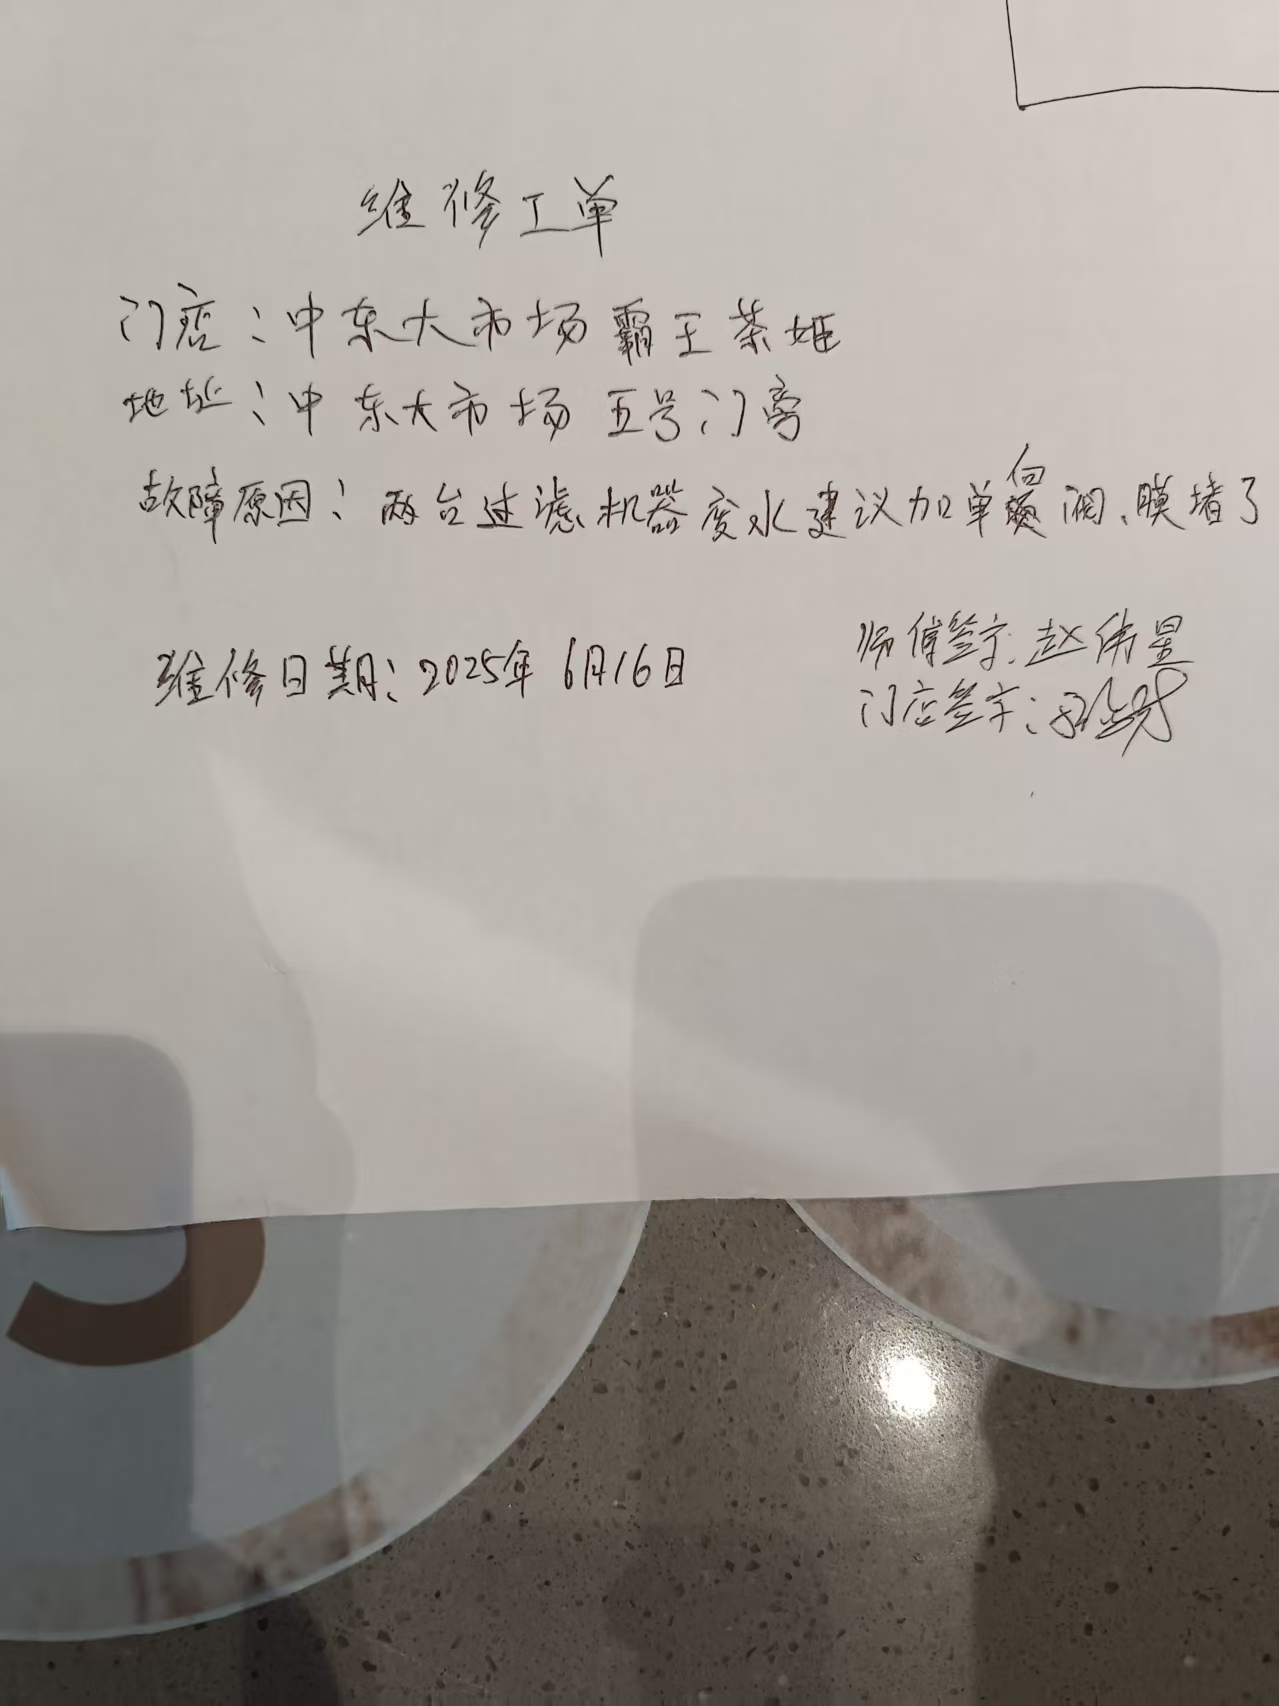 维修工单
门店：中东大市场霸王茶姬
地址：中东大市场五号门旁
故障原因：两台过滤机器废水建议加单向阀、膜堵了
师傅签字：赵伟星
维修日期：2025年6月16日
门店签字：